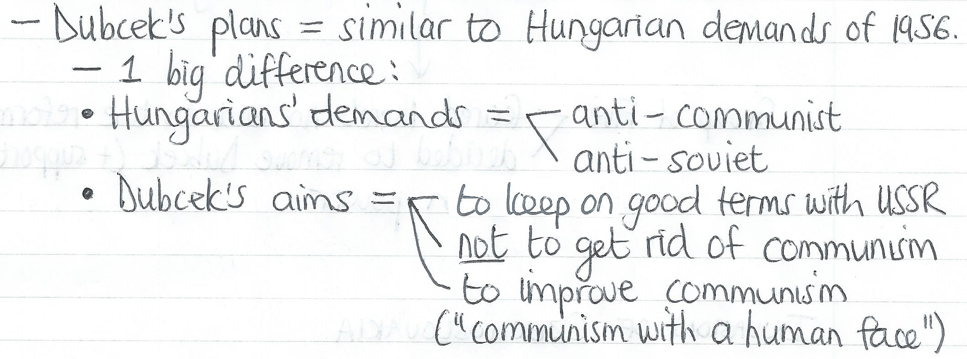 – Dubcek's plans = similar to Hungarian demands of 1956.
– 1 big difference:
• Hungarians' demands = anti-communist
anti-soviet
• Dubcek's aims = to keep on good terms with USSR
not to get rid of communism
to improve communism
("communism with a human face")